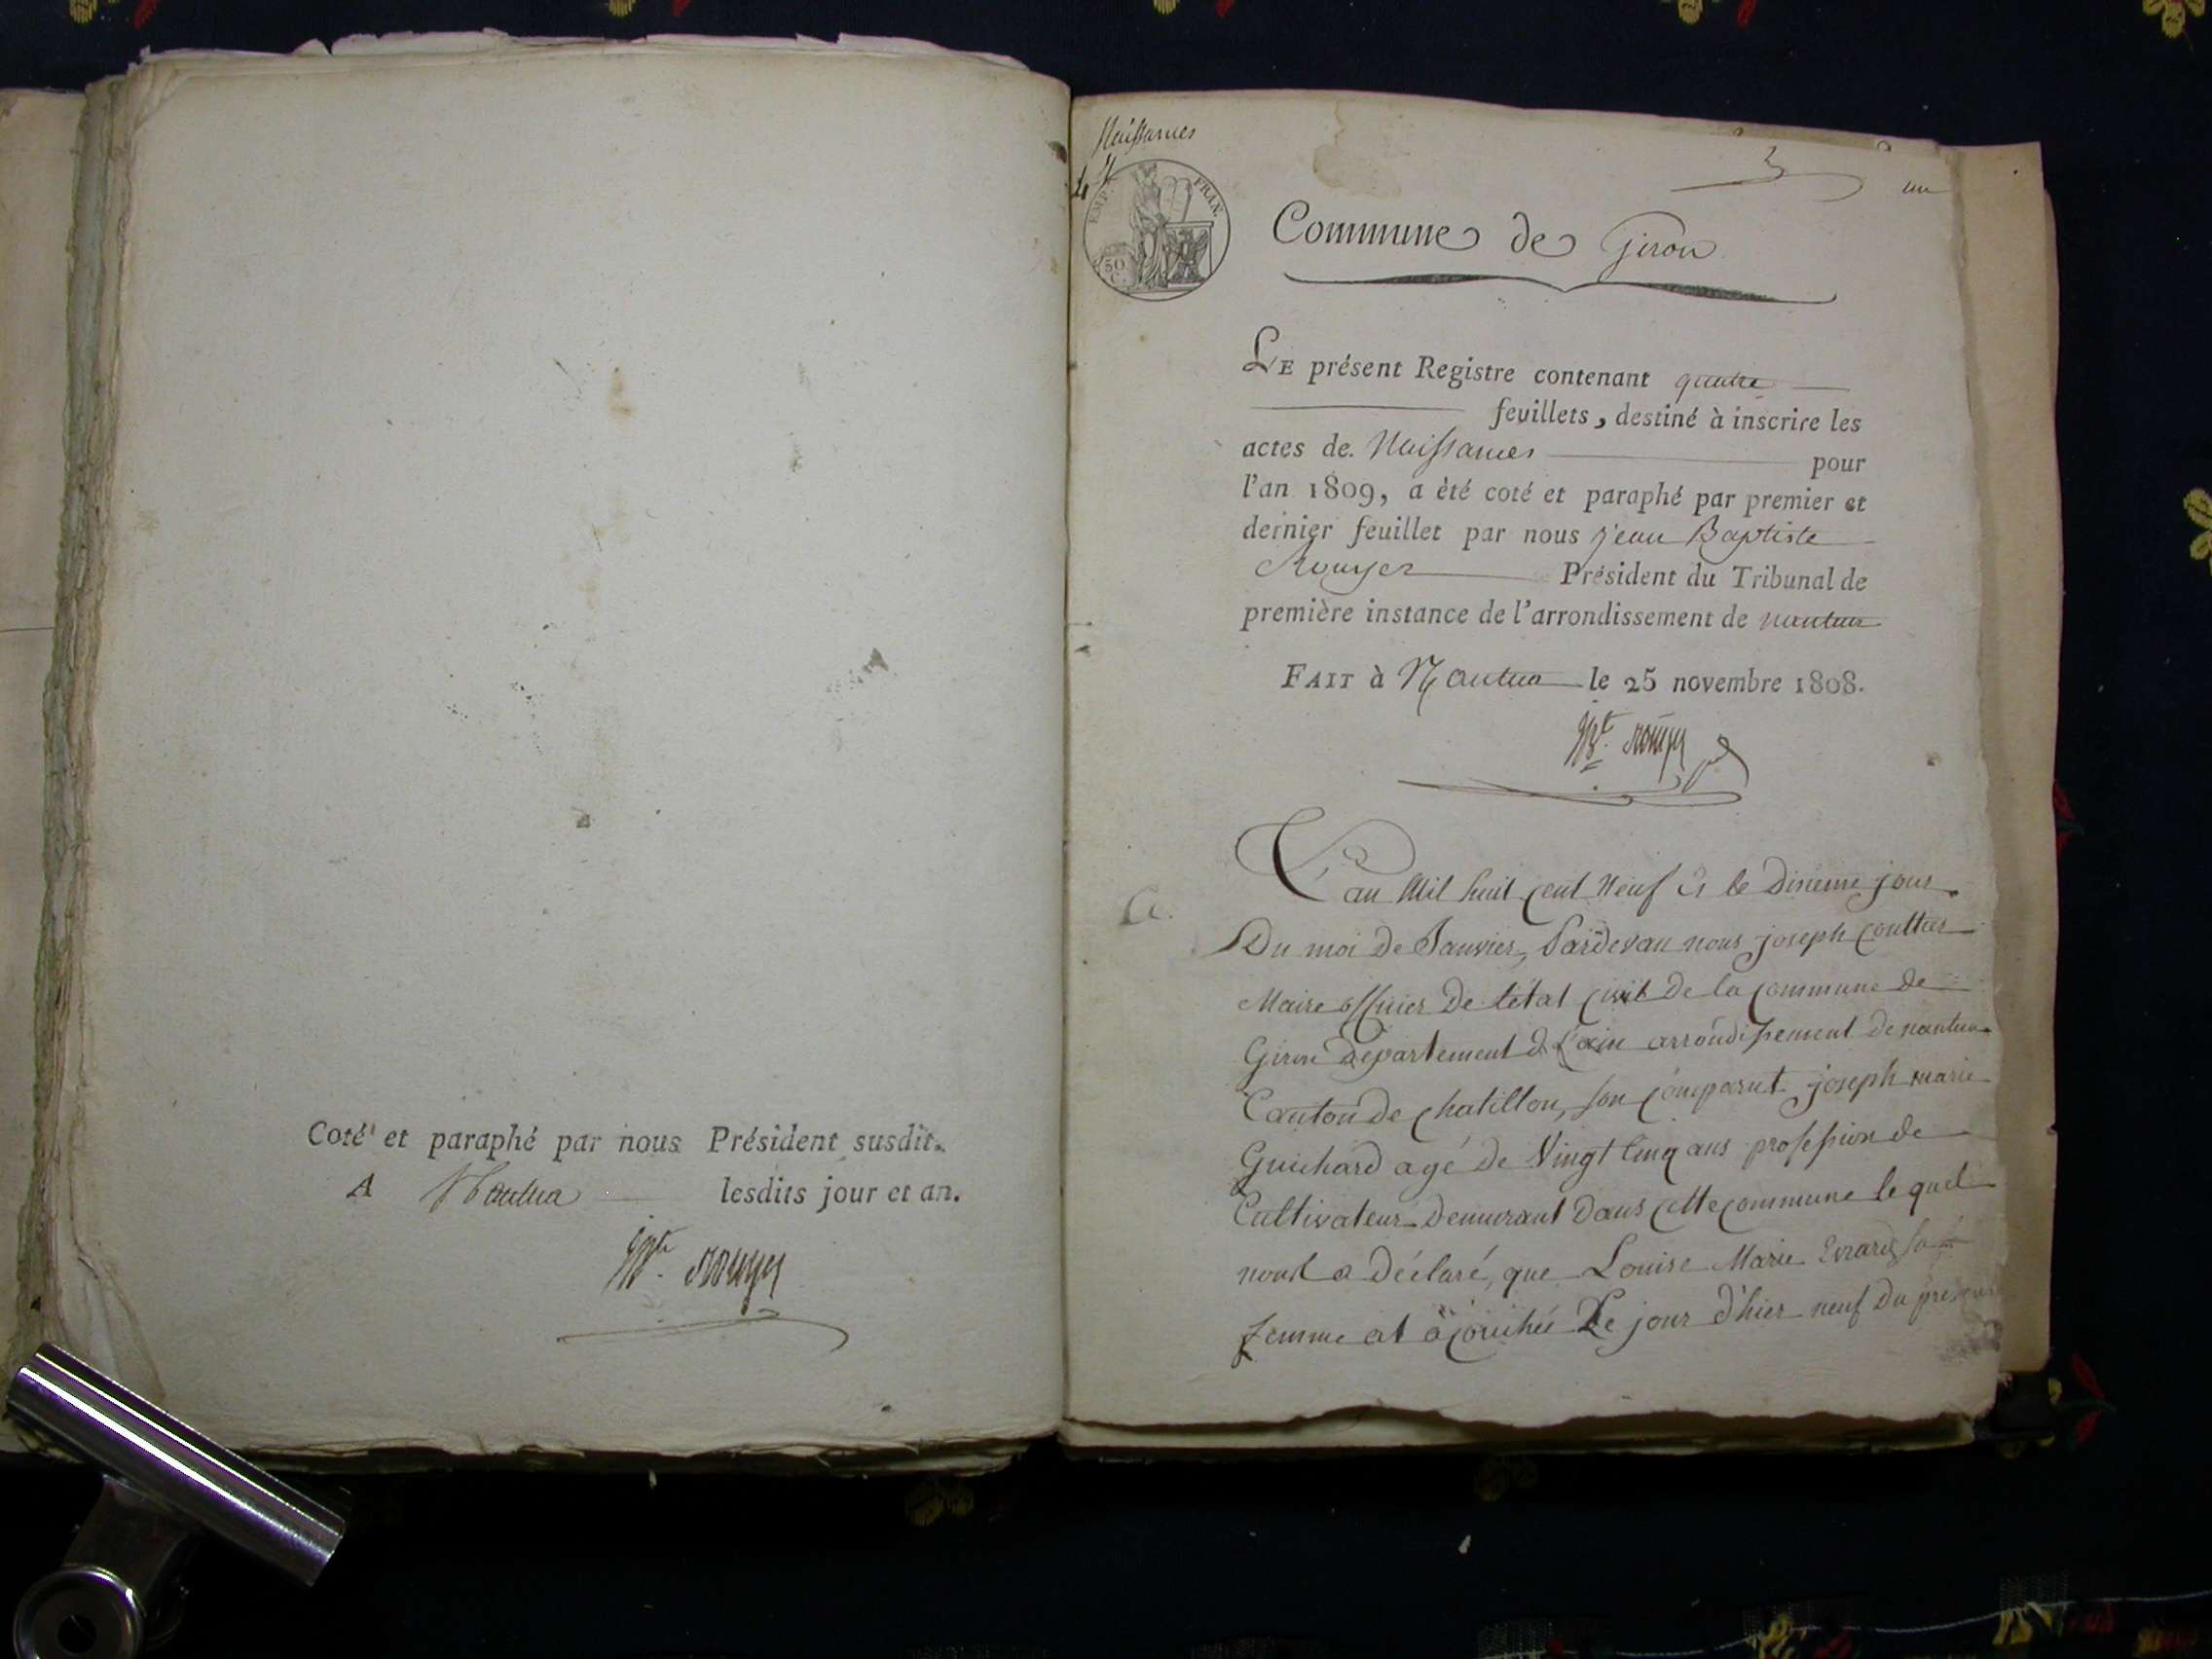 Coté et paraphé par nous Président susdit.
A Nantua lesdits jour et an.
Jn Bte rouyer
Naissances
EMP. FRAN.
50 C.
3
un
Commune de Giron
LE présent Registre contenant quatre
feuillets, destiné à inscrire les
actes de Naissances pour
l'an 1809, a été coté et paraphé par premier et
dernier feuillet par nous jean Baptiste
Rouyer Président du Tribunal de
première instance de l'arrondissement de nantua
FAIT à Nantua le 25 novembre 1808.
rouyer
L'an Mil huit cent Neuf & le Dixieme jour
Du moi De Janvier, Pardevan nous joseph
Maire officier De létat civil De la commune de
Giron Departement de L'ain arrondissement De nantua
Canton de chatillon, son comparut joseph marie
Guichard agé De Vingt cinq ans profession de
Cultivateur Demeurant Dans cette commune le quel
nous a Déclaré, que Louise Marie Evrard sa
femme at acouchée Le jour d'hier neuf Du présent